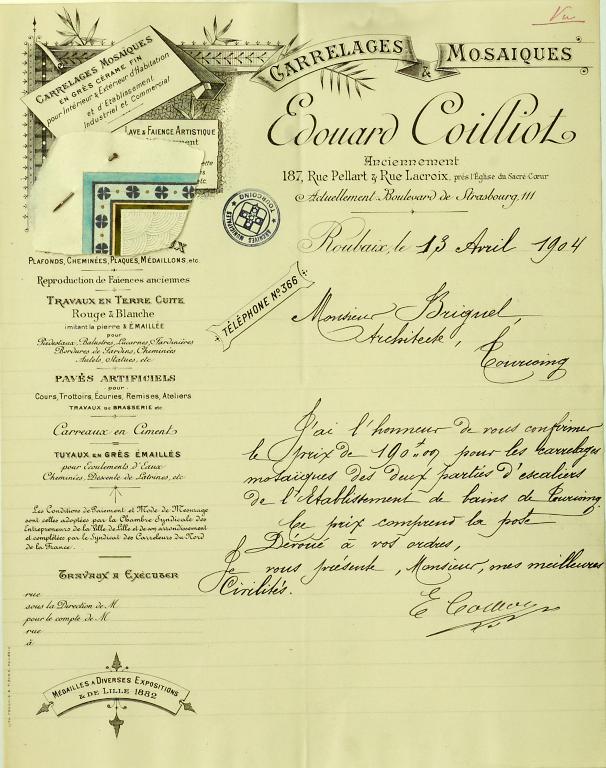 Vu
CARRELAGES & MOSAIQUES
CARRELAGES MOSAÏQUES
EN GRÈS CÉRAME FIN
pour Intérieur & Extérieur d'Habitation
et d'Etablissement
Industriel et Commercial
LAVE & FAIENCE ARTISTIQUE
Edouard Coilliot
Anciennement
187, Rue Pellart & Rue Lacroix, près l'Église du Sacré-Cœur
Actuellement Boulevard de Strasbourg, 111
ARCHIVES MUNICIPALES
TOURCOING
Roubaix, le 13 Avril 1904
TÉLÉPHONE No. 366
Monsieur Briguel,
Architecte,
Tourcoing
PLAFONDS, CHEMINÉES, PLAQUES, MÉDAILLONS, etc.
Reproduction de Faïences anciennes
TRAVAUX EN TERRE CUITE
Rouge & Blanche
imitant la pierre & ÉMAILLÉE
pour
Piédestaux, Balustres, Lucarnes, Jardinières
Bordures de Jardins, Cheminées
Autels, Statues, etc.
PAVÉS ARTIFICIELS
pour
Cours, Trottoirs, Ecuries, Remises, Ateliers
TRAVAUX DE BRASSERIE etc
Carreaux en Ciment
TUYAUX EN GRÈS ÉMAILLÉS
pour Ecoulements d'Eaux
Cheminées, Descente de Latrines, etc
Les Conditions de Paiement et Mode de Mesurage
sont celles adoptées par la Chambre Syndicale des
Entrepreneurs de la Ville de Lille et de son arrondissement
et complétées par le Syndicat des Carreleurs du Nord
de la France.
TRAVAUX A EXÉCUTER
rue
sous la Direction de M
pour le compte de M
rue
à
J'ai l'honneur de vous confirmer
le prix de 190 f 00 pour les carrelages
mosaïques des deux parties d'escaliers
de l'Etablissement de bains de Tourcoing.
Ce prix comprend la pose
Dévoué à vos ordres,
Je vous présente, Monsieur, mes meilleures
Civilités.
E Coilliot
MÉDAILLES A DIVERSES EXPOSITIONS
& DE LILLE 1882